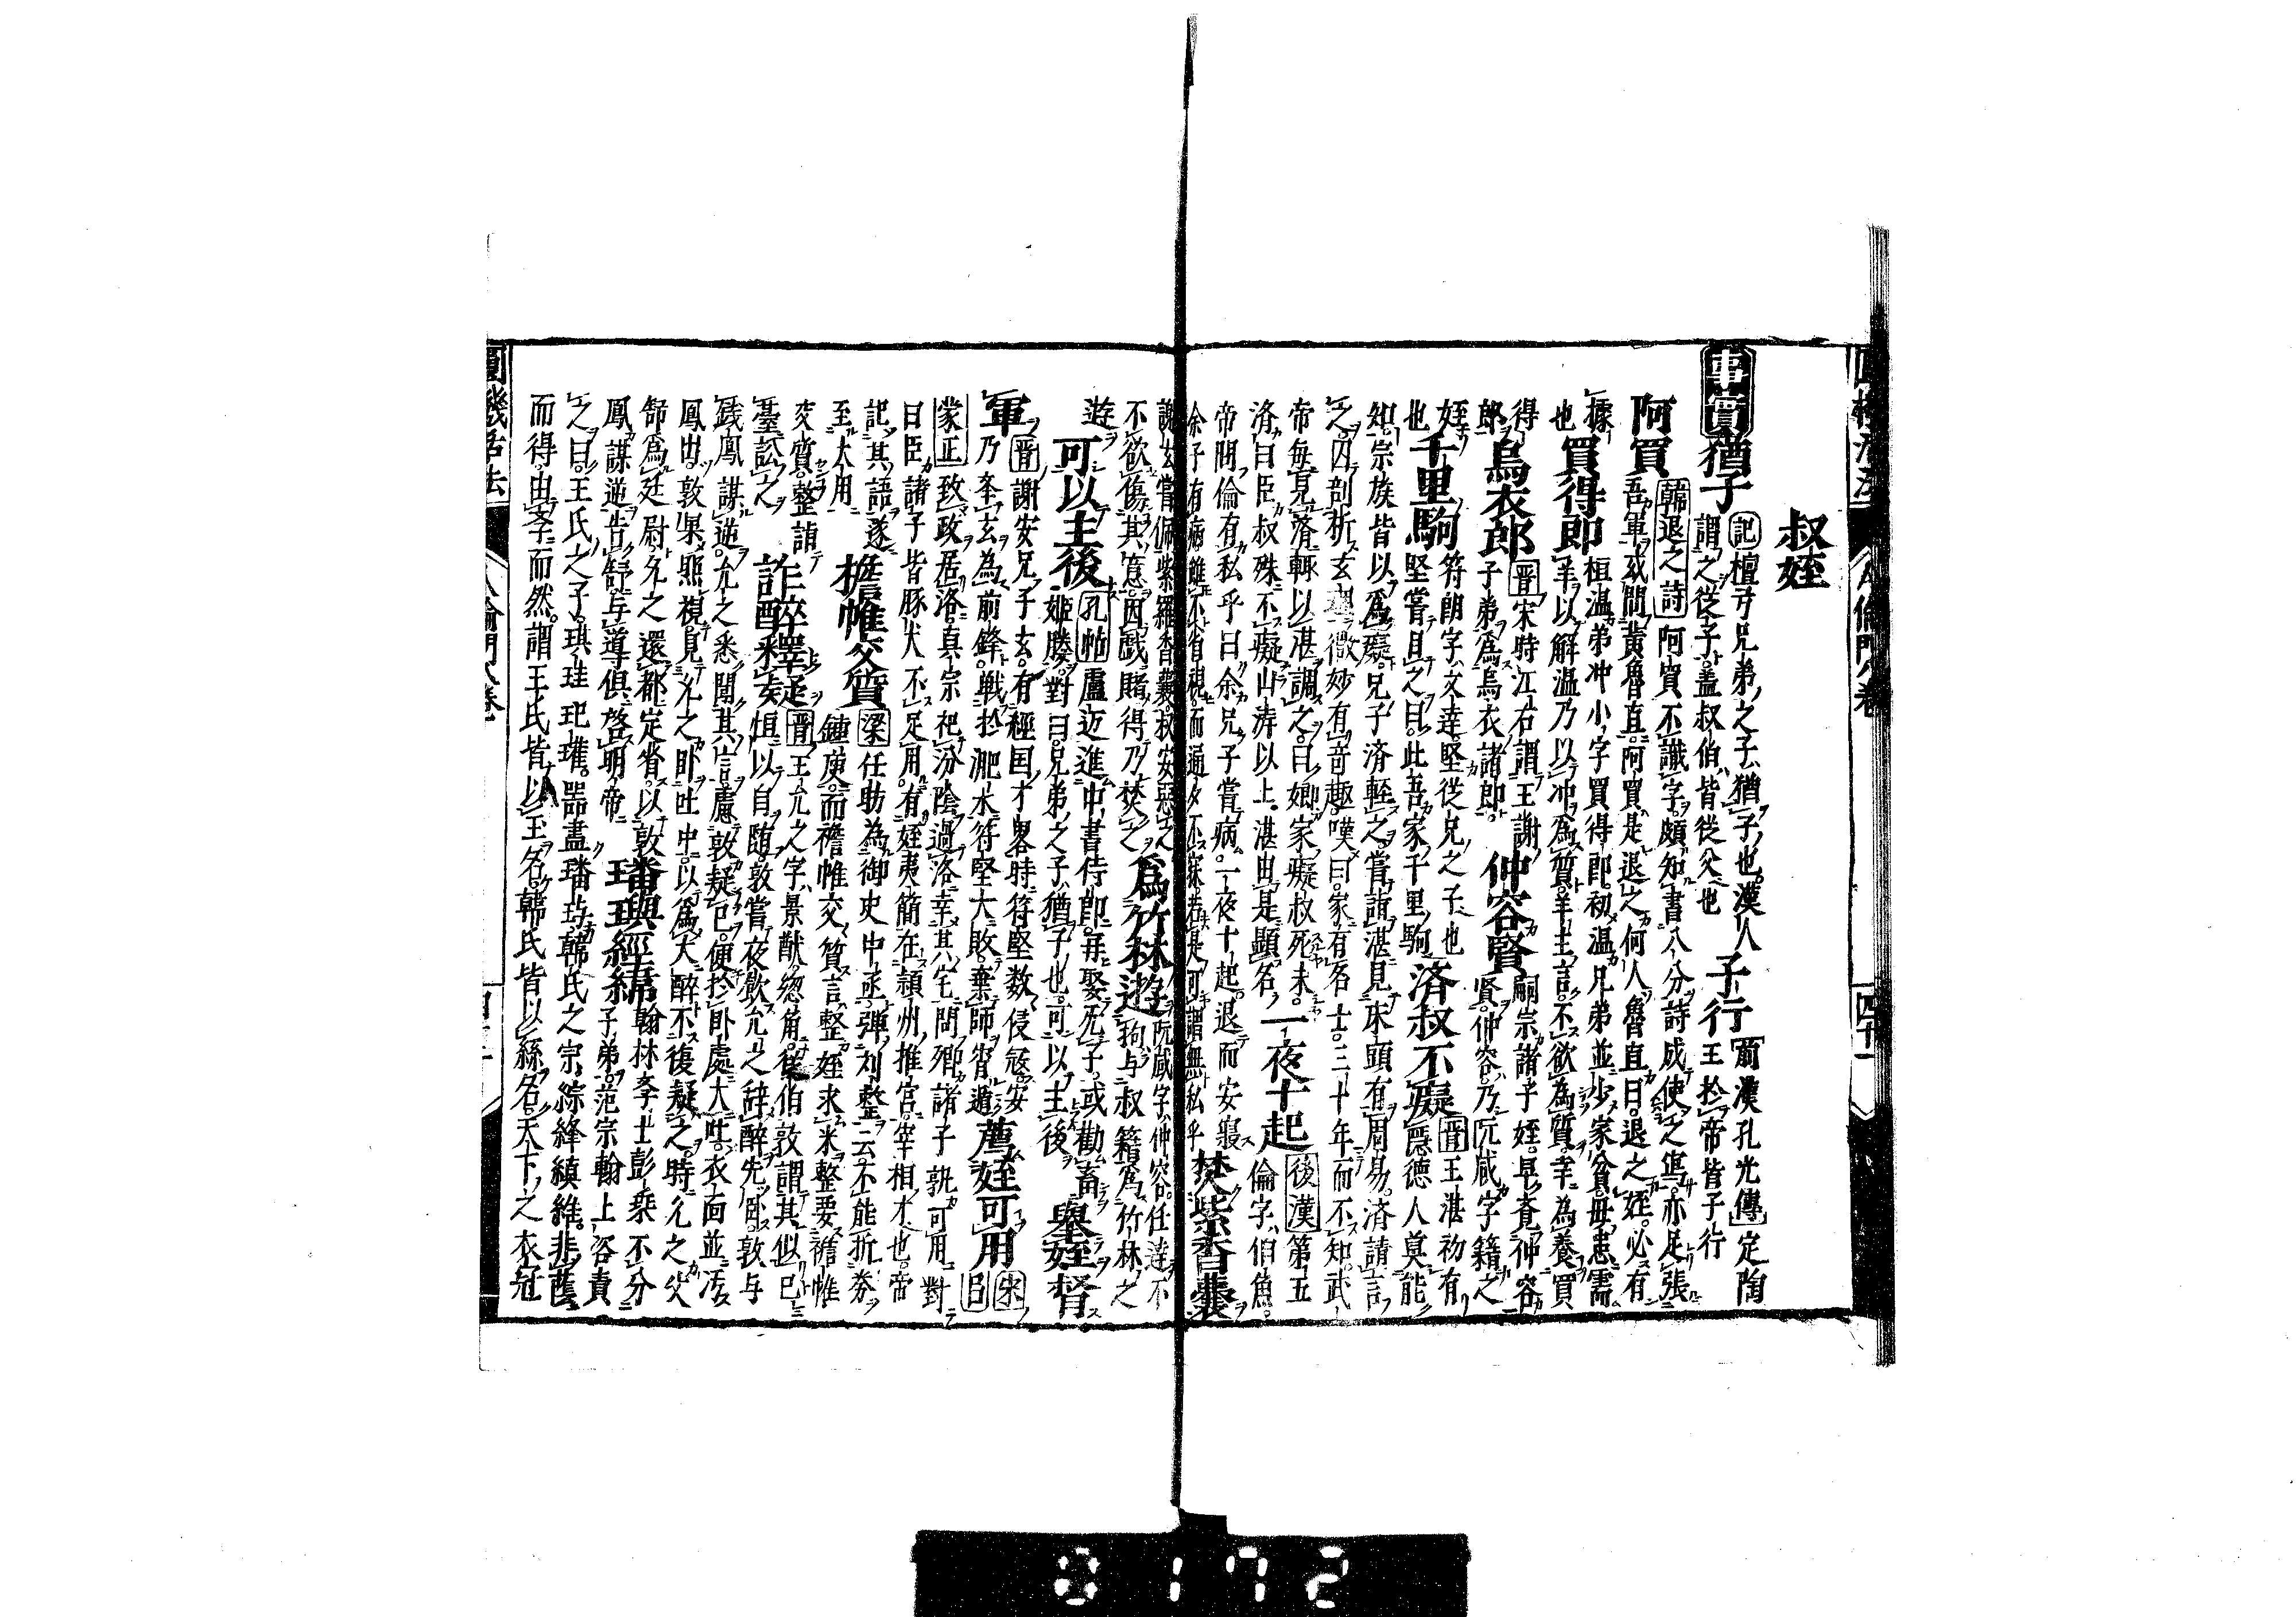 叔姪
事實
猶子
記檀弓兄弟之子猶子也漢人
謂之從子盖叔伯皆從父也
子行
前漢孔光傳定陶
王於帝皆子行
阿買
韓退之詩阿買不識字頗知書八分詩成使之寫亦足張
吾軍或問黄魯直阿買是退之何人魯直曰退之姪必有
據也
買得郎
桓温弟冲小字買得郎初温兄弟並少家貧母患需
羊以解温乃以冲爲質羊主言不欲為質幸為養買
得郎
烏衣郎
晋宋時江右謂王謝
子弟爲烏衣諸郎
仲容賢
嗣宗諸子姪早斉仲容
賢仲容乃阮咸字籍之
姪也
千里駒
符朗字文達堅從兄之子也
堅嘗目之曰此吾家千里駒
済叔不癡
晋王湛初有
隠徳人莫能
知宗族皆以爲癡兄子済輕之嘗詣湛見床頭有周易済請言
之因剖析玄理微妙有竒趣嘆曰家有名士三十年而不知武
帝毎見済輒以湛調之曰卿家癡叔死未
済曰臣叔殊不癡山濤以上湛由是顯名
一夜十起
後漢第五
倫字伯魚
帝問倫有私乎曰余兄子嘗病一夜十起退而安寢
余子有病雖不省視而通夕不寐若是可謂無私乎
焚紫香嚢
謝玄嘗佩紫羅香嚢叔安惡之
不欲傷其意因戯賭得乃焚之
爲竹林遊
阮咸字仲容任達不
拘与叔籍爲竹林之
遊
可以主後
孔帖盧迈進中書侍郎再娶死子或勸畜
姬媵對曰兄弟之子猶子也可以主後
擧姪督
軍
晋謝安兄子玄有經国才畧時符堅数侵冦安
乃奉玄為前鋒戦於淝水符堅大敗棄師宵遁
薦姪可用
宋呂
蒙正致政居洛真宗祀汾陰過洛幸其宅問卿諸子孰可用對
曰臣諸子皆豚犬不足用有姪夷簡在頴州推官宰相才也帝
記其語遂
至大用
檐帷交質
梁任昉為御史中丞彈刘整云不能折券
鍾庾而襜帷交質言整姪求米整要襜帷
交質整詣
臺訟之
詐醉釋疑
晋王允之字景猷緫角從伯敦謂其似已
恒以自随敦嘗夜飲允之辞醉先卧敦与
銭鳳謀逆允之悉聞其言慮敦疑已便於卧處大吐衣面並汚
鳳出敦果照視見允之卧吐中以爲大醉不復疑之時允之父
舒爲廷尉允之還都定省以敦
鳳謀逆告舒与導俱啓明帝
璠璵經緯
翰林李士彭乗不分
子弟范宗翰上咨責
之曰王氏之子琪珪玘璡噐盡璠璵韓氏之宗綜絳縝維非蔭
而得由李而然謂王氏皆以玉名韓氏皆以糸名天下之衣冠
0172